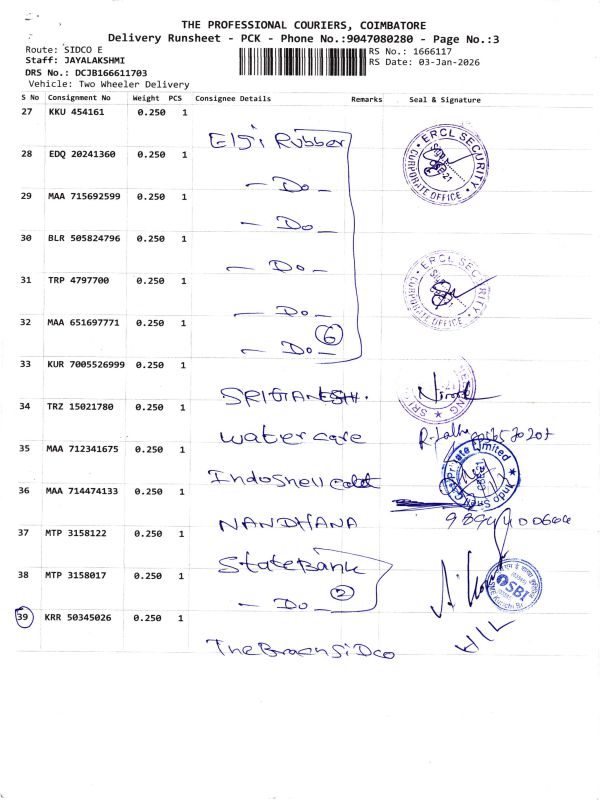 THE PROFESSIONAL COURIERS, COIMBATORE
Delivery Runsheet - PCK - Phone No.:9047080280 - Page No.:3
Route: SIDCO E
RS No.: 1666117
Staff: JAYALAKSHMI
RS Date: 03-Jan-2026
DRS No.: DCJB166611703
Vehicle: Two Wheeler Delivery
S No Consignment No Weight PCS Consignee Details Remarks Seal & Signature
27 KKU 454161 0.250 1 Elgi Rubber
28 EDQ 20241360 0.250 1 — Do —
29 MAA 715692599 0.250 1 — Do —
30 BLR 505824796 0.250 1 — Do —
31 TRP 4797700 0.250 1 — Do —
32 MAA 651697771 0.250 1 — Do — 6
33 KUR 7005526999 0.250 1 SRIGANESH.
34 TRZ 15021780 0.250 1 water care
35 MAA 712341675 0.250 1 IndoShell
36 MAA 714474133 0.250 1 NANDHANA
37 MTP 3158122 0.250 1 StateBank
38 MTP 3158017 0.250 1 — Do — 2
39 KRR 50345026 0.250 1
ERCL SECURITY
CORPORATE OFFICE
ERCL SECURITY
CORPORATE OFFICE
SRI
Private Limited
Indo Shell
SBI